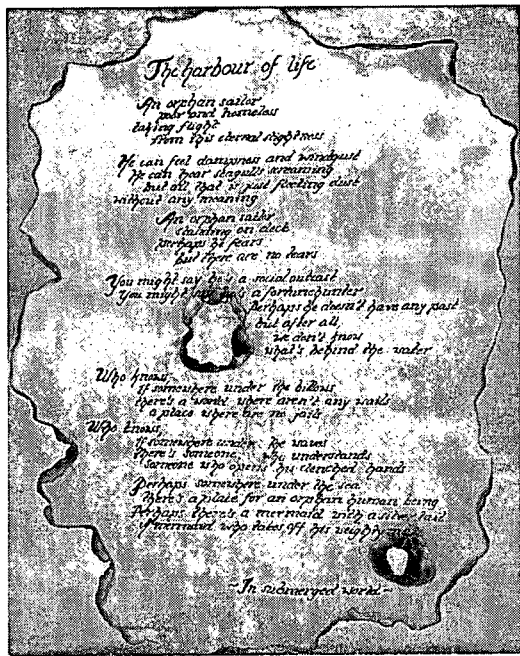 The harbour of life
An orphan sailor
poor and homeless
taking flight
from this eternal
He can feel dampness and windgust
He can hear seagulls screaming
but all that is just fleeting dust
without any meaning
An orphan sailor
standing on deck
perhaps he fears
but there are no tears
You might say he's a social outcast
You might say he's a fortunehunter
Perhaps he doesn't have any past
but after all,
we don't know
what's behind the water
Who knows,
if somewhere under the billows
there's a world where aren't any
a place where are no jails
Who knows,
if somewhere under the waves
there's someone, who understands
someone who opens his clenched hands
Perhaps somewhere under the sea
there's a place for an orphan human being
Perhaps there's a mermaid with a tail
A mermaid who takes off his
~In submerged world~